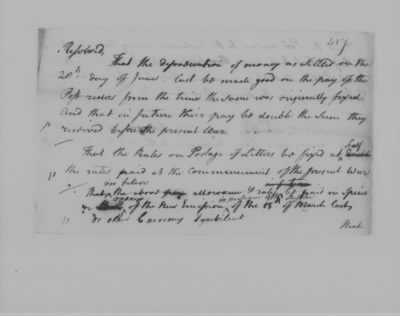 487
Resolved,
That the depreciation of money as settled on the
20th day of June last be made good on the pay of the
Post riders from the time the same was originally fixed
and that in future their pay be double the sum they
received before the present War.
That the Rates on Postage of Letters be fixed at half
the rates paid at the commencement of the present War
in future
That the above allowance & rates be paid in Specie
or money of the New Emission of the 18th of March last
or other Currency equivalent
That